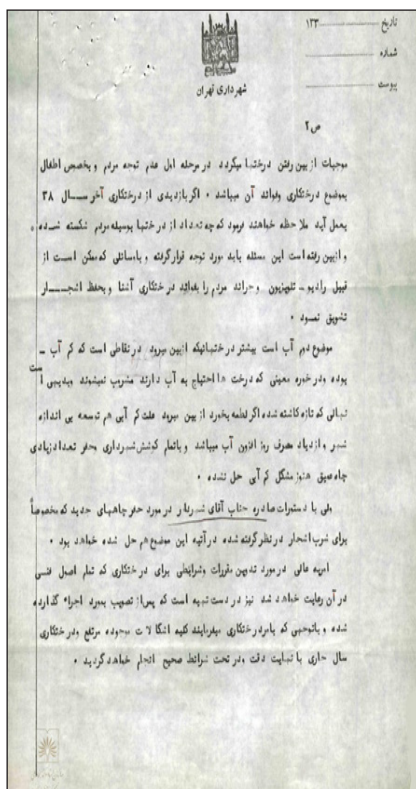 تاریخ ۱۳۳
شماره
پیوست
شهرداری تهران
ص ۲
موجبات از بین رفتن درختها میگردد در مرحله اول عدم توجه مردم و بخصوص اطفال
بموضوع درختکاری وفوائد آن میباشد ۰ اگر بازدیدی از درختکاری آخر ســال ۳۸
بعمل آید ملاحظه خواهند فرمود که چه تعداد از درختها بوسیله مردم شکسته شـده
وازبین رفته است این مسئله باید مورد توجه قرار گرفته و باوسائلی که ممکن اسـت از
قبیل رادیو ـ تلویزیون وجرائد مردم را بفوائد درختکاری آشنا و بحفظ اشجـــار
تشویق نمـود ۰
موضوع دوم آب است بیشتر درختهائیکه ازبین میرود در نقاطی است که کم آب ـ
بوده ودر خوره معینی که درخت ها احتیاج به آب دارند مشروب نمیشوند وبدیهی است
نهالی که تازه کاشته شده اگر لطمه بخورد از بین میرود علت کم آبی هم توسعه بی اندازه
شهر و ازدیاد مصرف روز افزون آب میباشد و باتمام کوشش شهرداری وحفر تعداد زیادی
چاه عمیق هنوز مشکل کم آبی حل نشده ۰
ولی با دستورات صادره جناب آقای شهردار در مورد حفر چاههای جدید که مخصوصاً
برای شرب اشجار در نظر گرفته شده در آتیه این موضوع هم حل شده خواهد بود ۰
امریه عالی در مورد تدوین مقررات وشرایطی برای درختکاری که تمام اصول فنـی
در آن رعایت خواهد شد نیز در دست تهیه است که پس از تصویب بمورد اجراء گذارده
شده و باتوجهی که بامر درختکاری میفرمایند کلیه اشکالات موجوده مرتفع ودرختکاری
سال جاری با نهایت دقت ودر تحت شرائط صحیح انجام خواهد گردید ۰